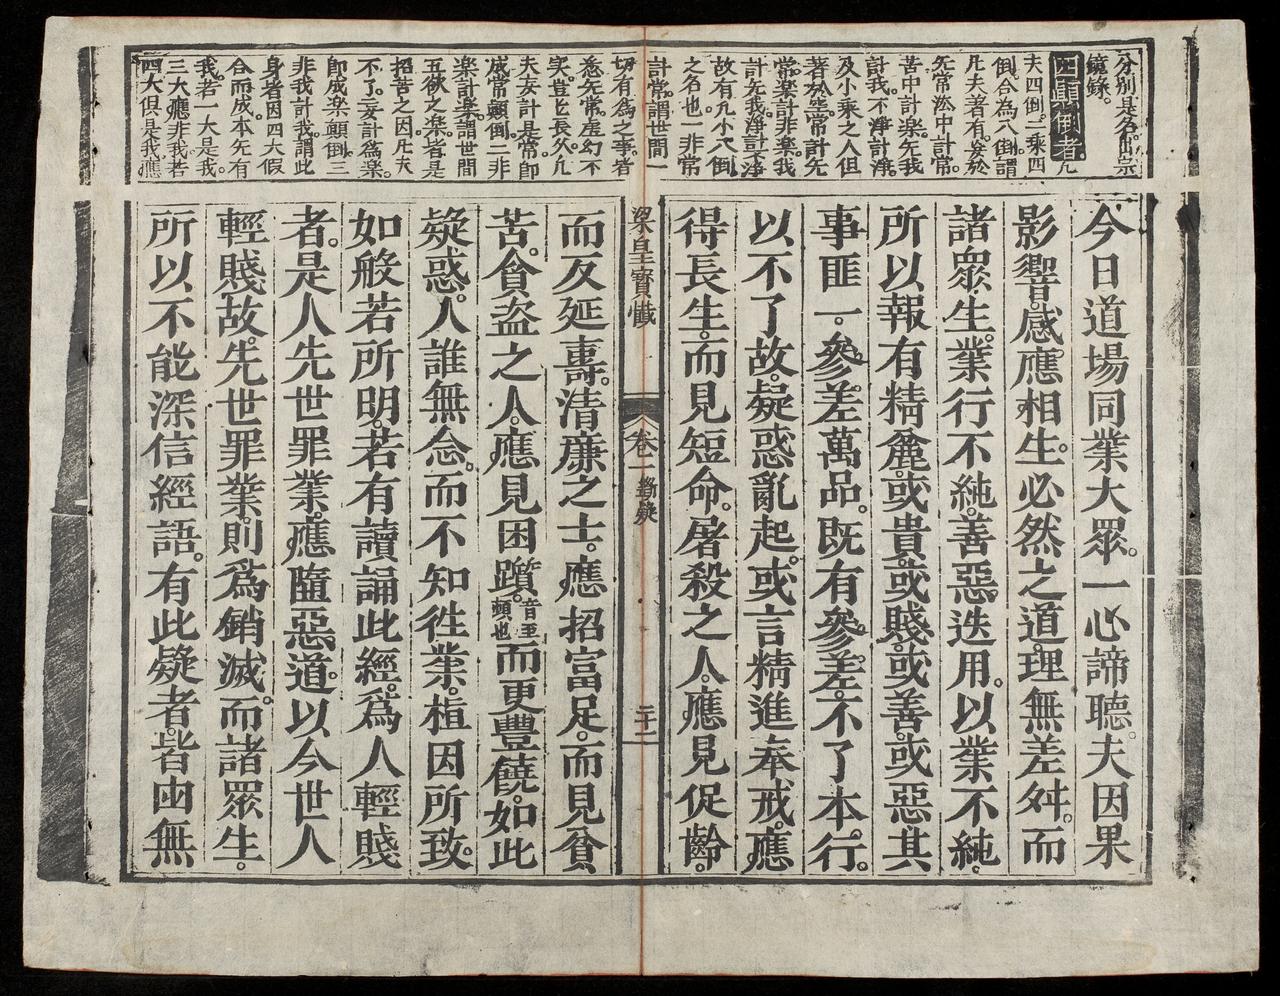 分別是名。出宗
鏡錄。
四顛倒者。凡
夫四倒。二乘四
倒。合為八倒。謂
凡夫著有。妄於
无常法中計常。
苦中計楽。无我
計我。不淨計淨。
及小乘之人但
著於空。常計无
常。楽計非楽。我
計无我。淨計不淨
故有凡小八倒
之名也。一非常
計常。謂世間一
切有為之事。皆
悉无常。虗幻不
实。豈長久。凡
夫妄計是常。即
成常顛倒。二非
楽計楽。謂世間
五欲之楽。皆是
招苦之因。凡夫
不了。妄計為楽。
即成楽顛倒。三
非我計我。謂此
身皆因四大假
合而成。本无有
我。若一大是我。
三大應非我。若
四大俱是我。應
今日道場同業大眾。一心諦聽。夫因果
影響。感應相生。必然之道。理無差舛。而
諸眾生。業行不純。善惡迭用。以業不純。
所以報有精麁。或貴。或賤。或善。或惡。其
事匪一。參差萬品。既有參差。不了本行。
以不了故。疑惑亂起。或言精進奉戒。應
得長生。而見短命。屠殺之人。應見促齡。
梁皇寶懺 卷一 斷疑 二十二
而反延壽。清廉之士。應招富足。而見貧
苦。貪盜之人。應見困躓。音至頓也而更豐饒。如此
疑惑。人誰無念。而不知徃業。植因所致。
如般若所明。若有讀誦此經。為人輕賤
者。是人先世罪業。應墮惡道。以今世人
輕賤故。先世罪業。則為銷滅。而諸眾生。
所以不能深信經語。有此疑者。皆由無